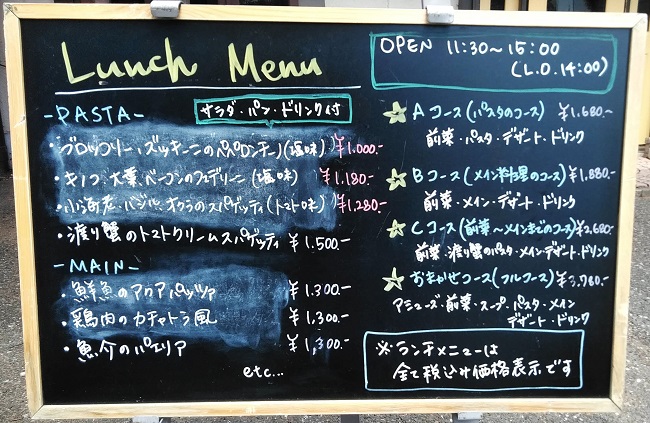 Lunch Menu
OPEN 11:30～15:00
(L.O.14:00)
-PASTA-
サラダ・パン・ドリンク付
・ブロッコリー、ズッキーニのペペロンチーノ(塩味) ¥1.000.-
・キノコ、大葉、ベーコンのフェデリーニ(塩味) ¥1.180.-
・小海老、バジル、オクラのスパゲッティ(トマト味) ¥1.280.-
・渡り蟹のトマトクリームスパゲッティ ¥1.500.-
-MAIN-
・鮮魚のアクアパッツァ ¥1.300.-
・鶏肉のカチャトラ風 ¥1.300.-
・魚介のパエリア ¥1,300.-
etc...
Aコース(パスタのコース) ¥1.680.-
前菜・パスタ・デザート・ドリンク
Bコース(メイン料理のコース) ¥1,880.-
前菜・メイン・デザート・ドリンク
Cコース(前菜～メインまでのコース) ¥2,680.-
前菜・渡り蟹のパスタ・メイン・デザート・ドリンク
おまかせコース(フルコース) ¥3,780.-
アミューズ・前菜・スープ・パスタ・メイン
デザート・ドリンク
※ランチメニューは
全て税込み価格表示です